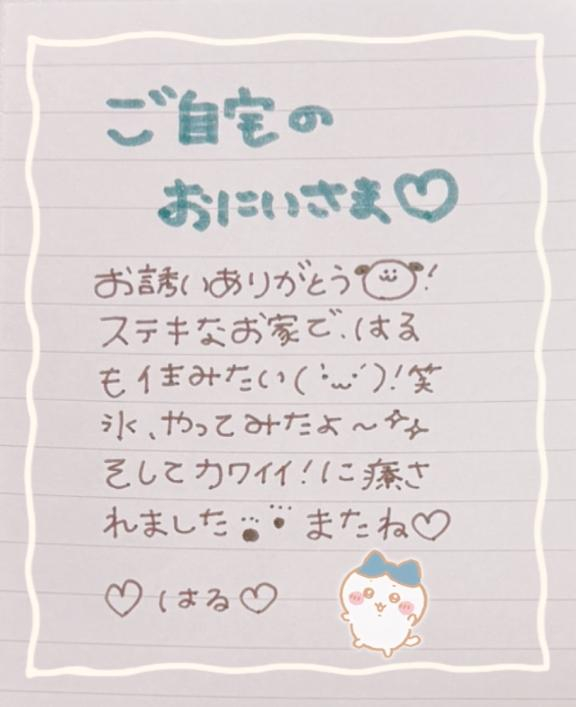 ご自宅の
おにいさま♡
お誘いありがとう!
ステキなお家で、はる
も住みたい(･̀ω･́)!笑
氷、やってみたよ〜✧✧
そしてカワイイ!に療さ
れました またね♡
♡はる♡